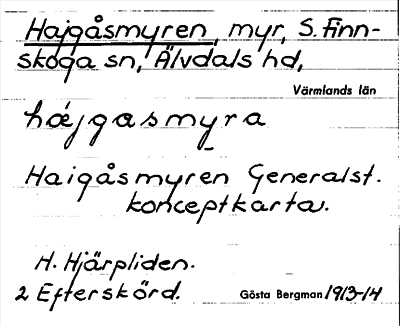 Hajgåsmyren, myr, S. Finn-
skoga sn, Älvdals hd,
Värmlands län
hájgasmyra
Haigåsmyren Generalst.
konceptkarta.
H. Hjärpliden.
2 Efterskörd. Gösta Bergman 1913-14